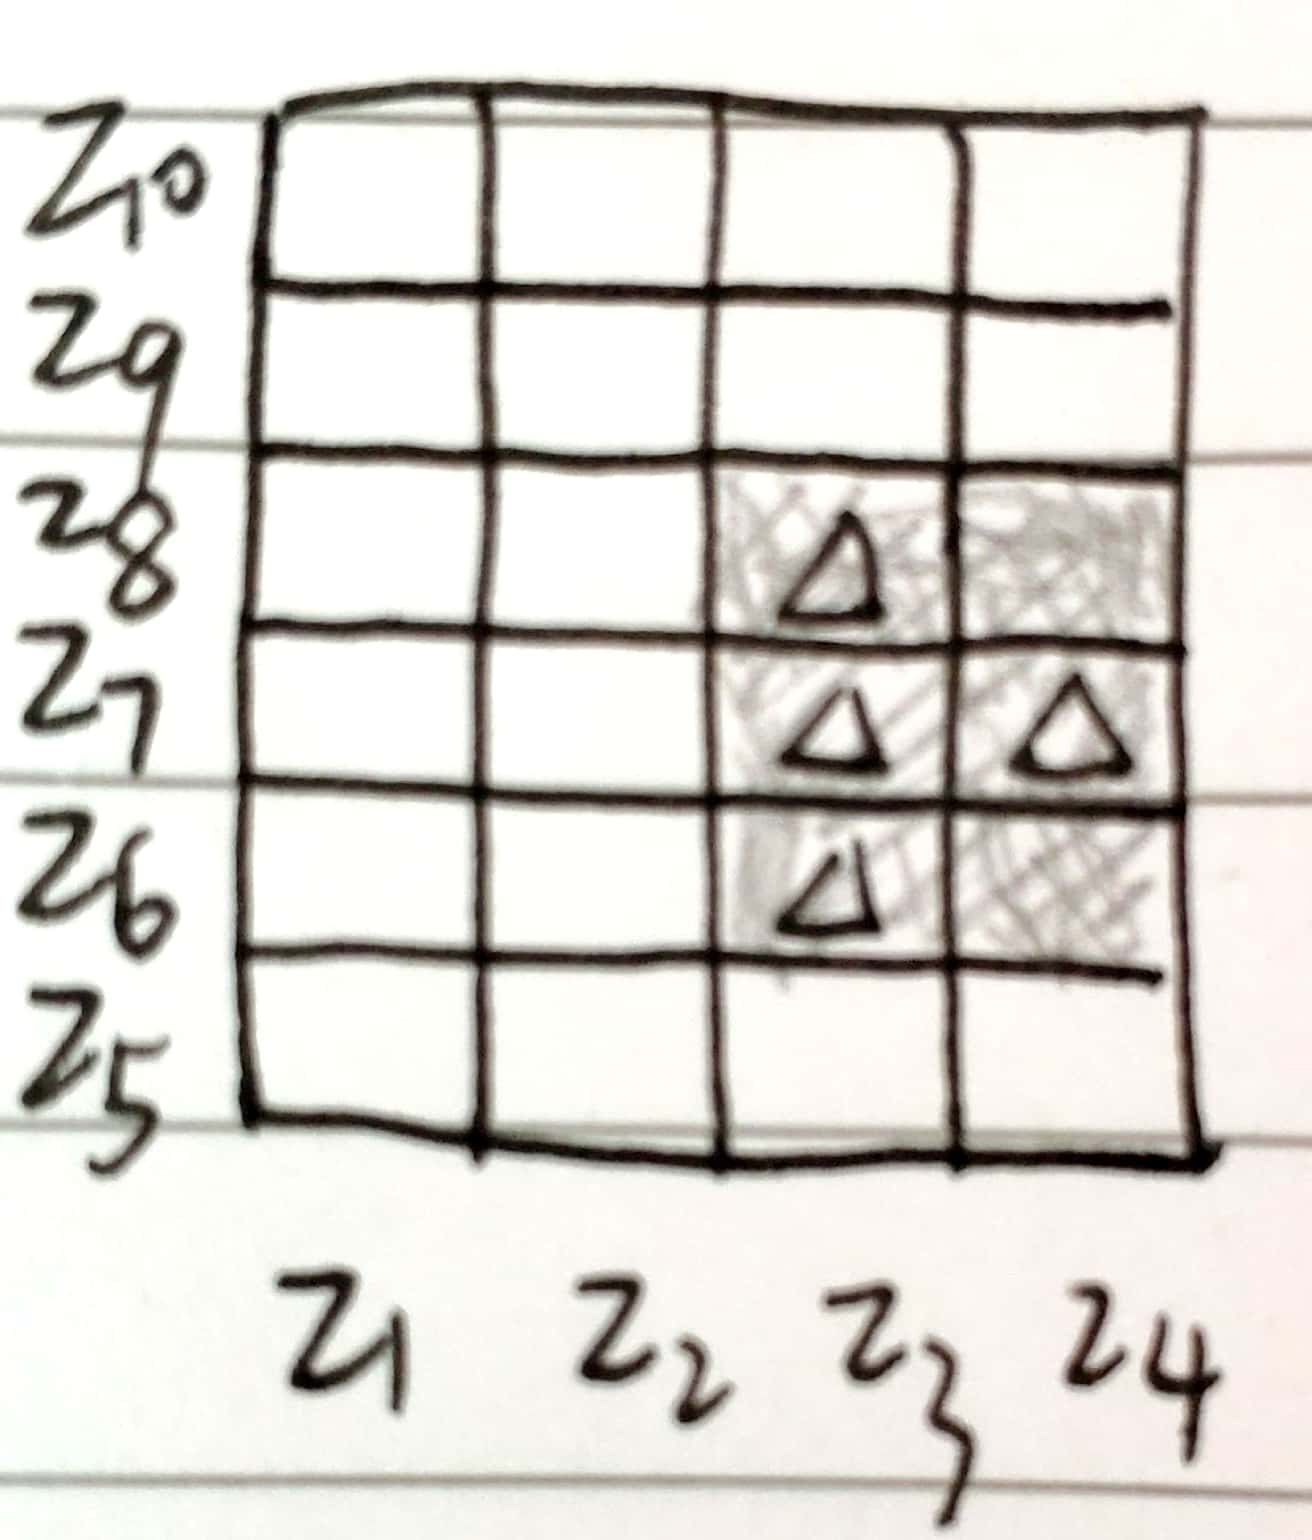 Z10
Z9
Z8
Z7
Z6
Z5
Z1 Z2 Z3 Z4